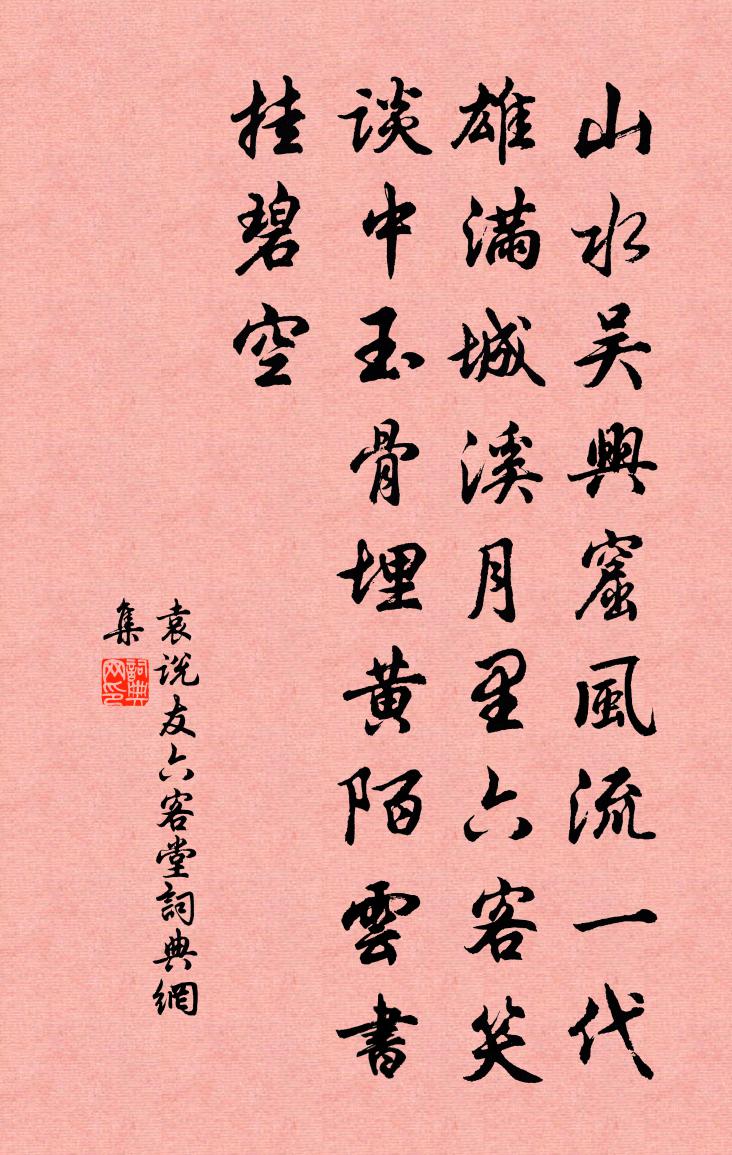 山水吴興窟風流一代
雄滿城溪月里六客笑
談中玉骨埋黄陌雲書
挂碧空
袁说友六客堂詞典網
集
詞典網印